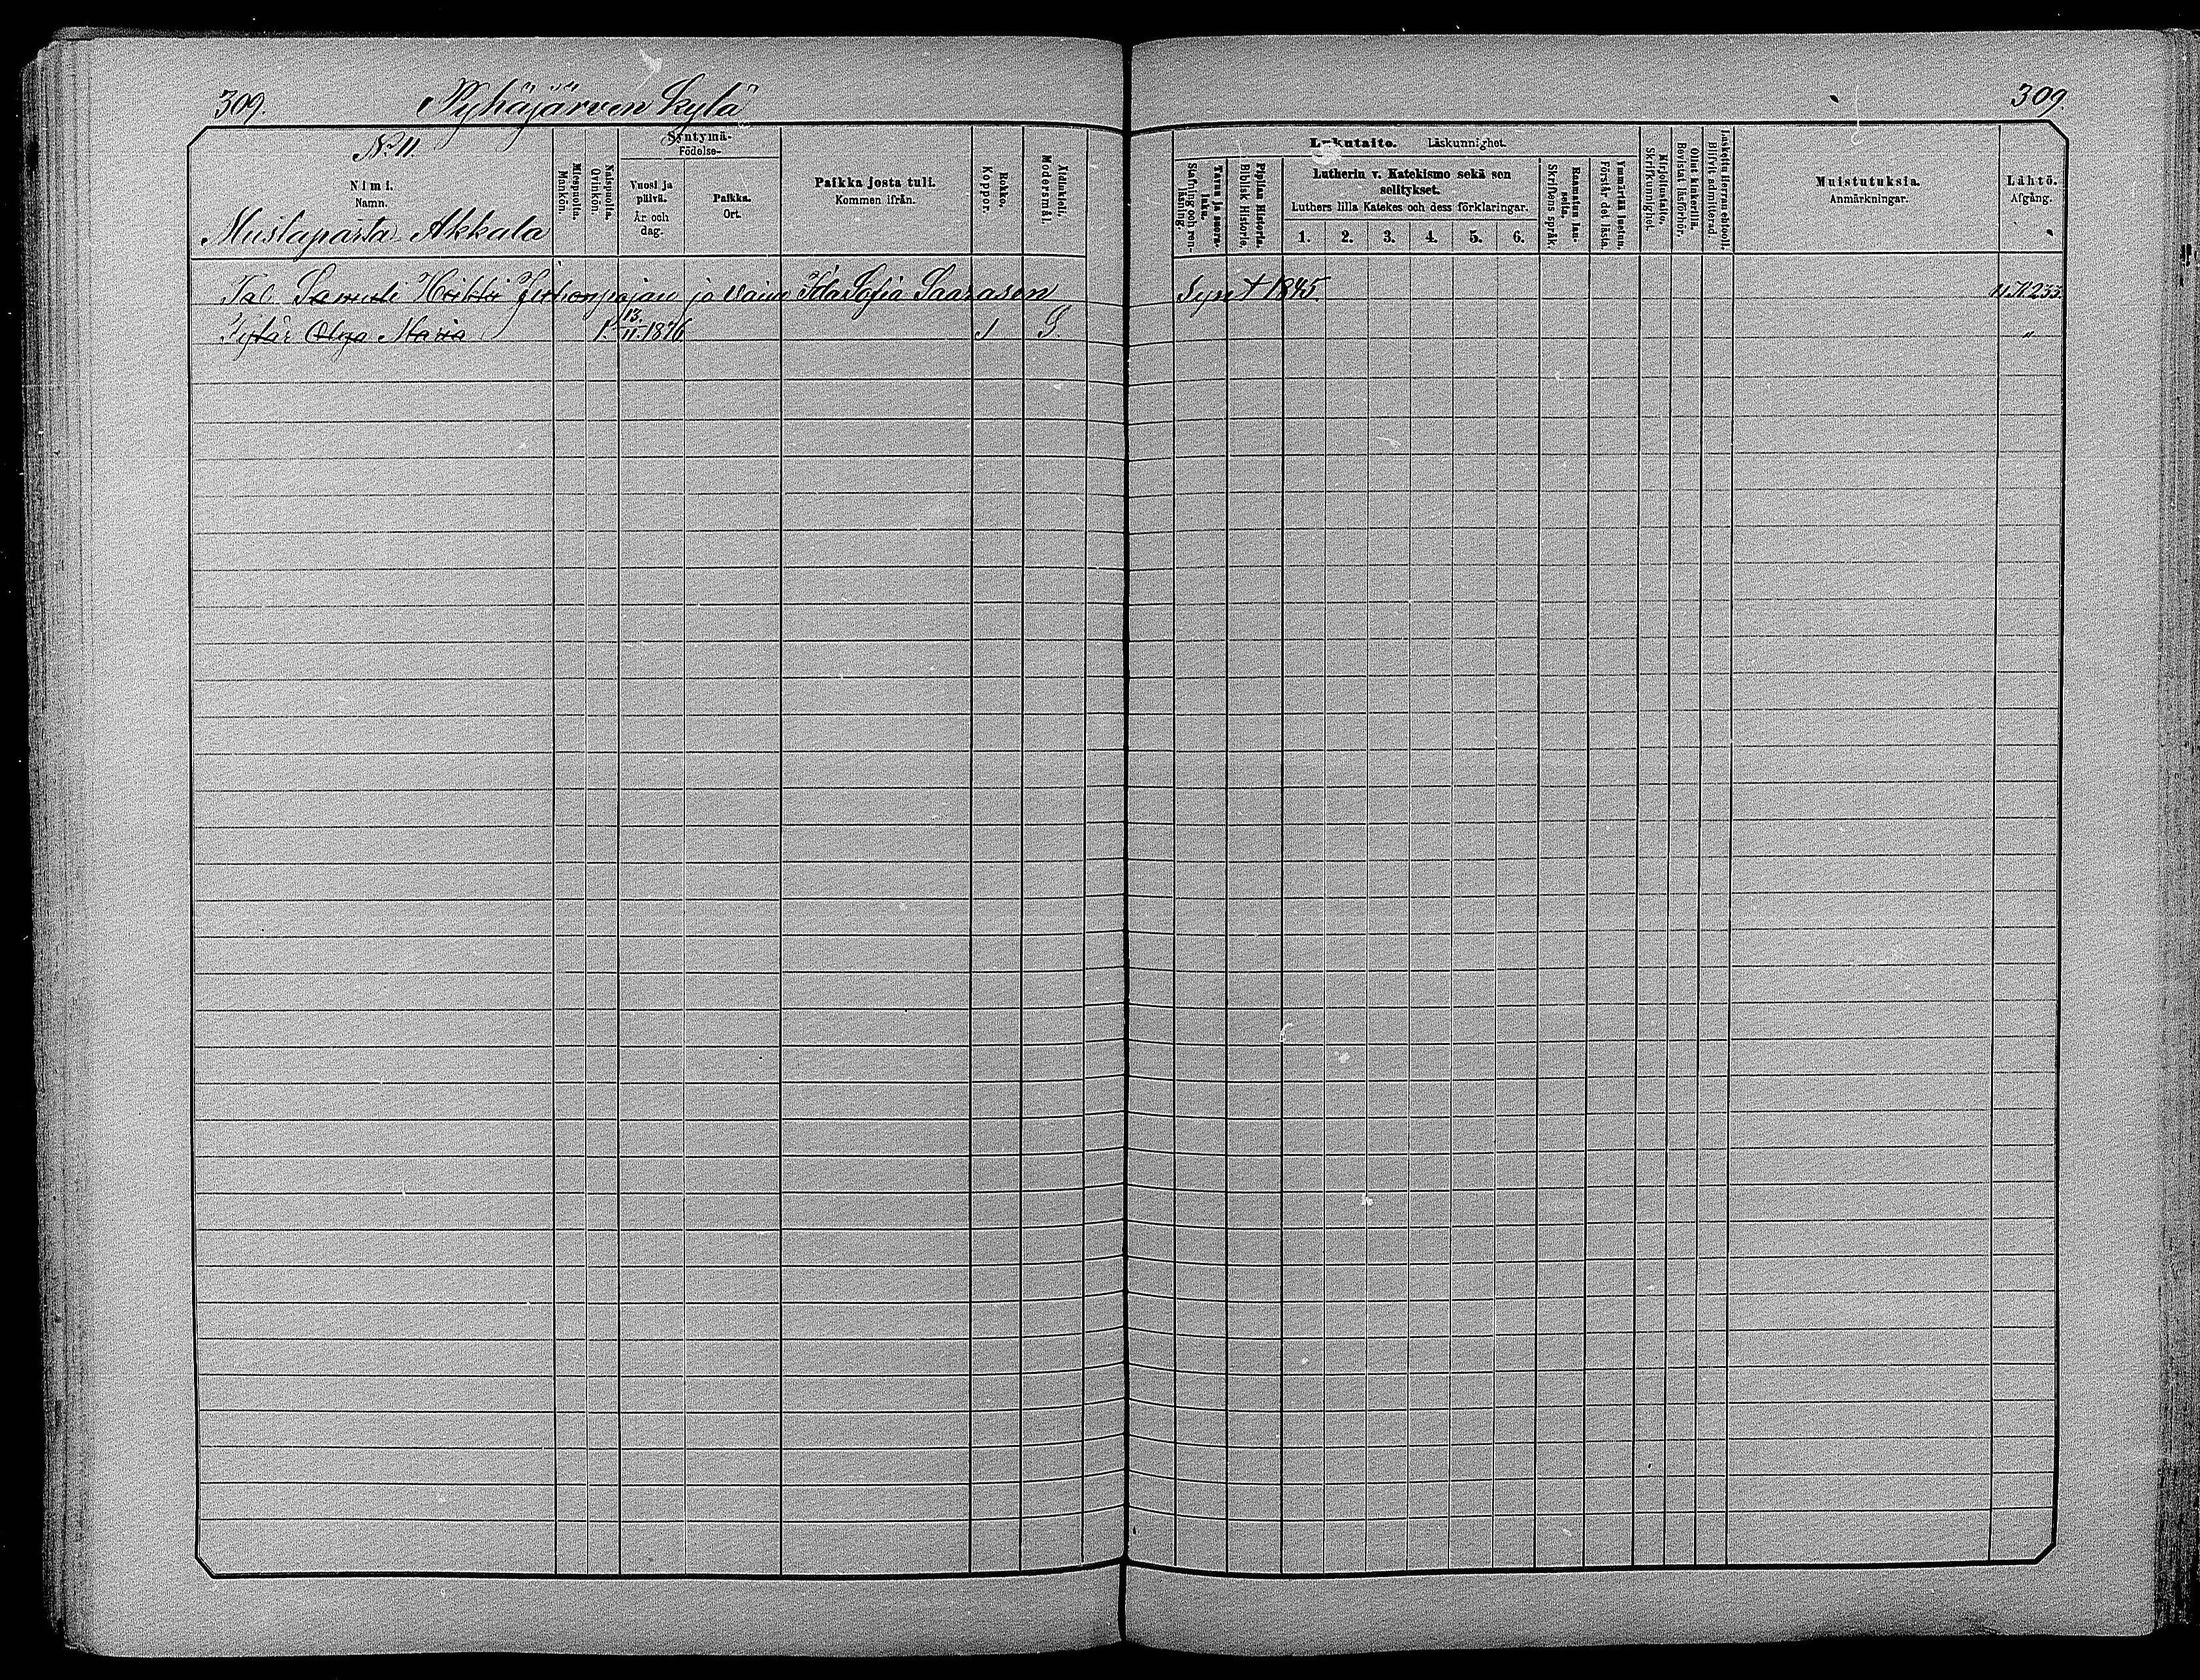 309.
Pyhäjärven kylä
309.
Syntymä-
Födelse-
Lukutaito. Läskunnighet.
No 11.
Nimi.
Namn.
Miespuolia.
Mankön.
Naispuolia.
Qvinkön.
Vuosi ja
päivä.
År och
dag.
Paikka.
Ort.
Paikka josta tuli.
Kommen ifrån.
Rokko.
Koppor.
Äidinkieli.
Modersmål.
Tavuu ja suora-
luku.
Stafning och ren-
läsning.
Piplian Historia.
Biblisk Historie.
Lutherin v. Katekismo sekä sen
selitykset.
Luthers lilla Katekes och dess förklaringar.
1. 2. 3. 4. 5. 6.
Raamatun lau-
seita.
Skriftens språk.
Ymmärtää luetun.
Förstår det lästa.
Kirjoitustaito.
Skrifkunnighet.
Ollut kinkerillä.
Bevistat läsförhör.
Laskettu Herran ehtoolle.
Blifvit admitterad.
Muistutuksia.
Anmärkningar.
Lähtö.
Afgång.
Mustaparta Akkala
Tal. Samuli Heikki ja vaim Ida Sofia Saarasen
Synt 1845.
233.
Tytär Olga Maria 1. 13. 11. 1876 1 S.
"